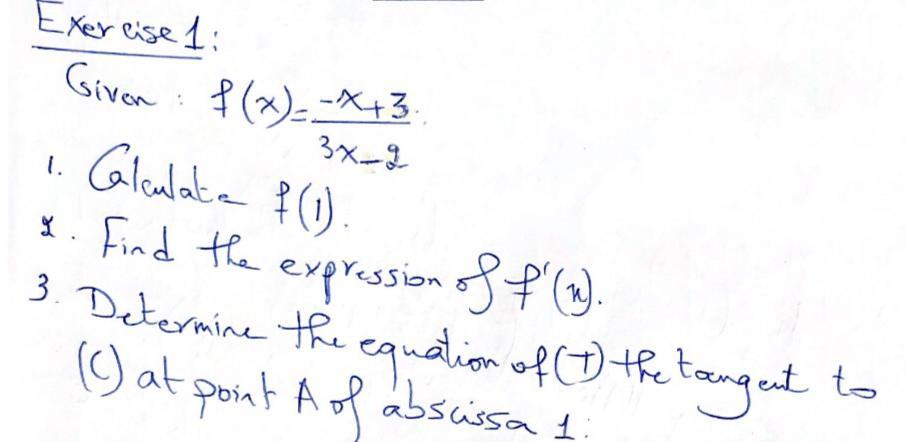 Exercise 1:
Given : f(x) = -x+3 / 3x-2
1. Calculate f(1).
2. Find the expression of f'(x).
3. Determine the equation of (T) the tangent to
(C) at point A of abscissa 1: